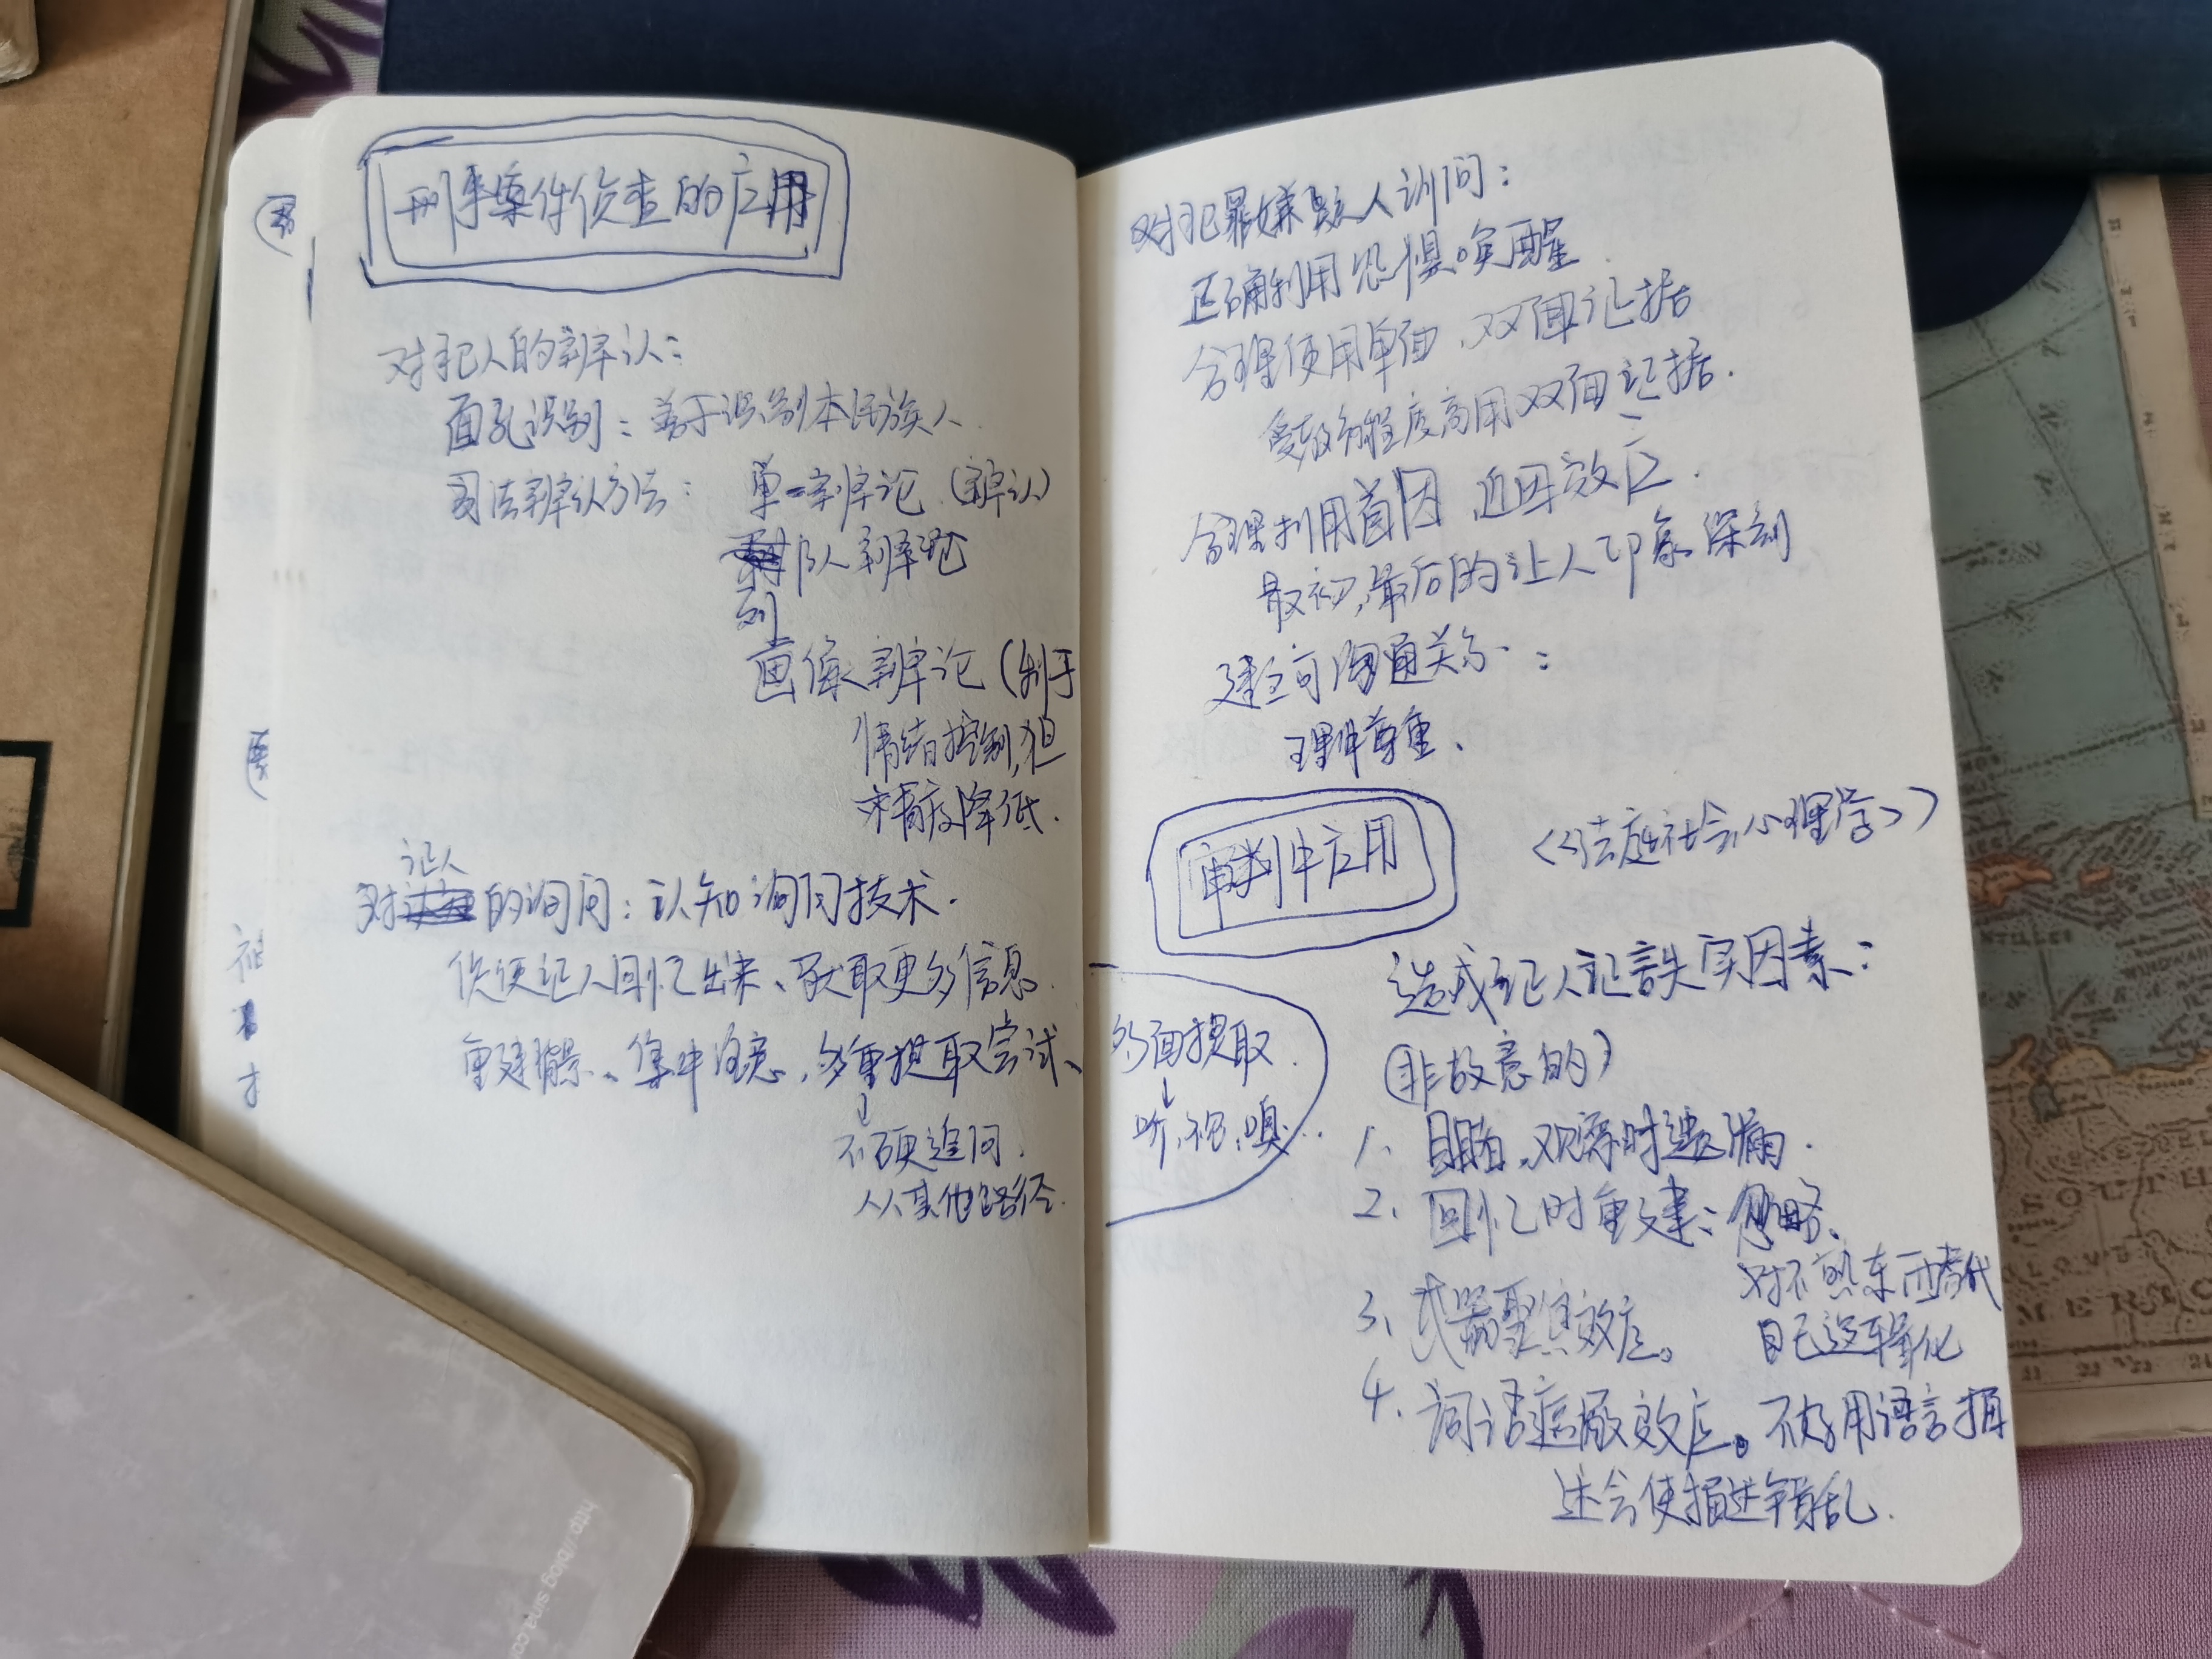 刑事案件侦查的应用
对犯人的辨认：
面孔识别：善于识别本民族人.
司法辨认方法：单一辨论（辨认）
队人辨论
列
画像辨论（利于
情绪控制，但
准确度降低.
证人
对的询问：认知询问技术.
促使证人回忆出来、获取更多信息.
重建情景、集中注意、多重提取尝试、
↓
不硬追问.
从其他路径.
对犯罪嫌疑人训问：
正确利用恐惧唤醒.
合理使用单面、双面证据
受教育程度高用双面证据.
合理利用首因、近因效应.
最初，最后的让人印象深刻
建立可沟通关系：
理解尊重、
审判中应用
《法庭社会心理学》
多面提取.
↓
听、视、嗅...
造成证人证言失实因素：
（非故意的）
1、目睹、观察时遗漏.
2、回忆时重建：忽略、
对不熟东西替代
自己逻辑化
3、武器聚焦效应。
4、词语遮蔽效应。不好用语言描
述会使描述错乱.
http://blog.sina.co
SOUTH